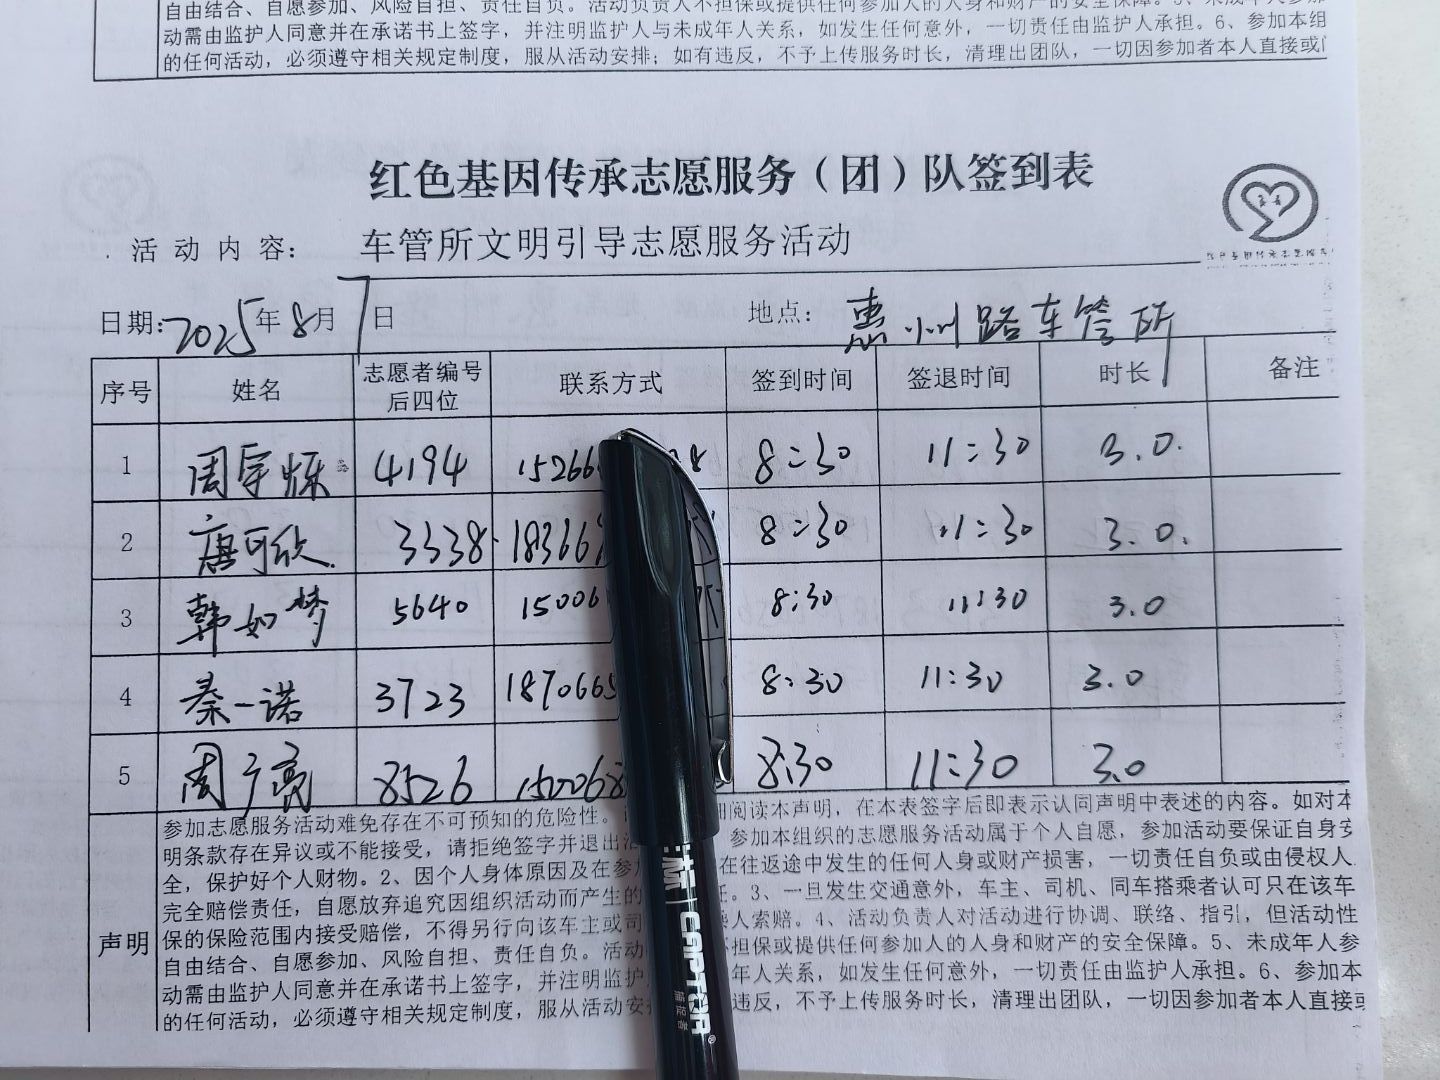 自由结合、自愿参加、风险自担、责任自负。活动负责人不担保或提供任何参加人的人身和财产的安全保障。5、未成年人参加
动需由监护人同意并在承诺书上签字，并注明监护人与未成年人关系，如发生任何意外，一切责任由监护人承担。6、参加本组
的任何活动，必须遵守相关规定制度，服从活动安排；如有违反，不予上传服务时长，清理出团队，一切因参加者本人直接或
红色基因传承志愿服务（团）队签到表
活动内容： 车管所文明引导志愿服务活动
日期：2025年8月7日 地点：惠州路车管所
序号 姓名 志愿者编号后四位 联系方式 签到时间 签退时间 时长 备注
1 周宇烁 4194 15266 8 8:30 11:30 3.0.
2 唐可欣. 3338 18366 8:30 11:30 3.0.
3 韩如梦 5640 15006 8:30 11:30 3.0
4 秦一诺 3723 1870665 8:30 11:30 3.0
5 周广亮 8526 150068 8:30 11:30 3.0
声明
参加志愿服务活动难免存在不可预知的危险性。 细阅读本声明，在本表签字后即表示认同声明中表述的内容。如对本
明条款存在异议或不能接受，请拒绝签字并退出活 参加本组织的志愿服务活动属于个人自愿，参加活动要保证自身安
全，保护好个人财物。2、因个人身体原因及在参加 在往返途中发生的任何人身或财产损害，一切责任自负或由侵权人
完全赔偿责任，自愿放弃追究因组织活动而产生的 任。3、一旦发生交通意外，车主、司机、同车搭乘者认可只在该车
保的保险范围内接受赔偿，不得另行向该车主或司 人索赔。4、活动负责人对活动进行协调、联络、指引，但活动性
自由结合、自愿参加、风险自担、责任自负。活动 不担保或提供任何参加人的人身和财产的安全保障。5、未成年人参
动需由监护人同意并在承诺书上签字，并注明监护 年人关系，如发生任何意外，一切责任由监护人承担。6、参加本
的任何活动，必须遵守相关规定制度，服从活动安 违反，不予上传服务时长，清理出团队，一切因参加者本人直接或
CAPTOR®